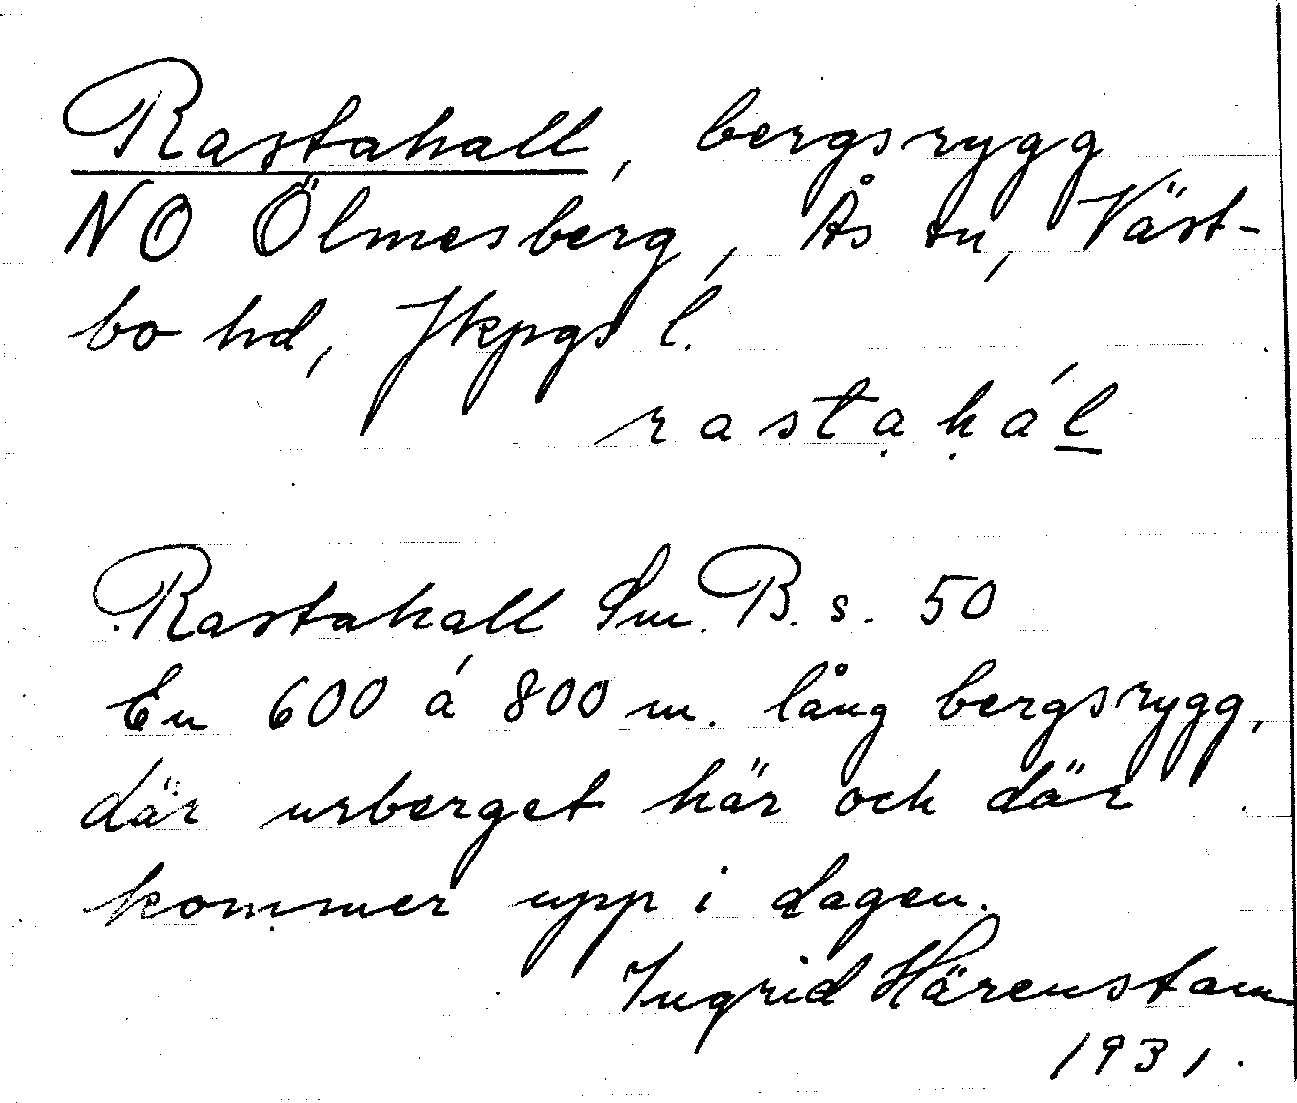 Rastahall, bergsrygg
NO Ölmesberg, Ås sn, Väst-
bo hd, Jkpgs l.
rastahál
Rastahall Sm. B. s. 50
En 600 á 800 m. lång bergsrygg,
där urberget här och där
kommer upp i dagen.
Ingrid Härenstam
1931.